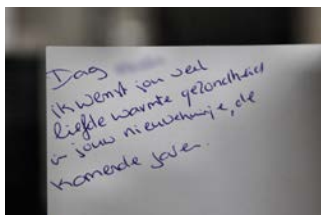 Dag
ik wenst jou veel
liefde warmte gezondheid
in jouw nieuwe huisje, de
komende jaren.